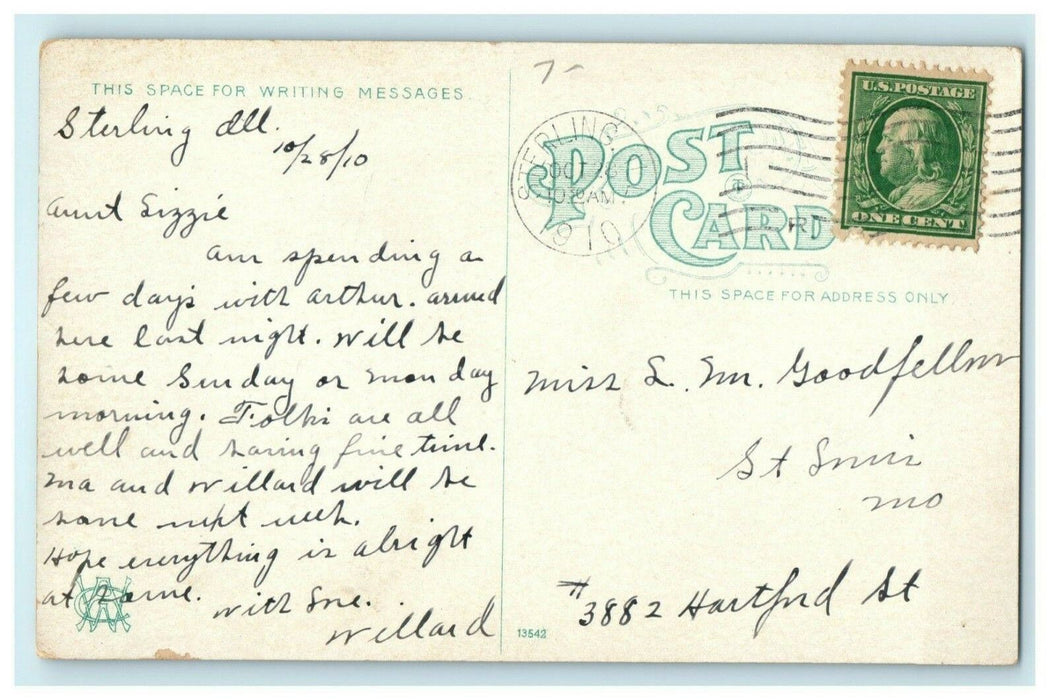 THIS SPACE FOR WRITING MESSAGES
Sterling Ill.
10/28/10
Aunt Lizzie
Am spending a
few days with Arthur. arrived
here last night. Will be
home Sunday or Monday
morning. Folks are all
well and having fine time.
Ma and Willard will be
home next week.
Hope everything is alright
at home.
With Love.
Willard
7-
STERLING
OCT
10 AM
1910
POST CARD
U.S. POSTAGE
ONE CENT
THIS SPACE FOR ADDRESS ONLY.
Miss L. M. Goodfellow
St Louis
Mo
#3882 Hartford St
13542